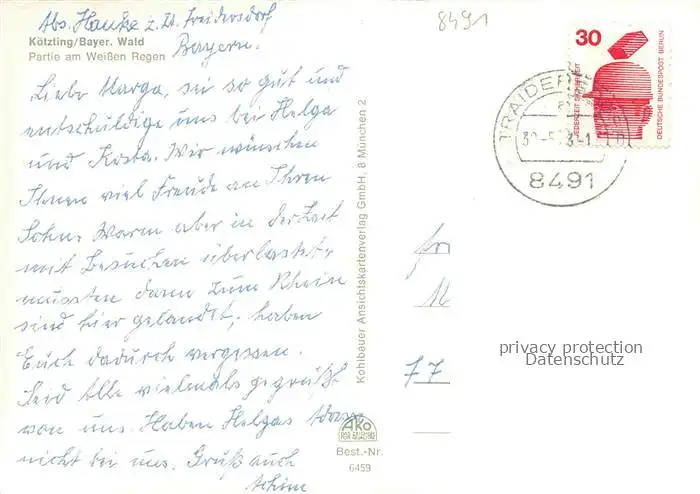 Abs. Hanke z. Zt. Traidersdorf
Bayern.
8491
Kötzting/Bayer. Wald
Partie am Weißen Regen
Liebe Marga, sei so gut und
entschuldige uns bei Helga
und Kosta. Wir wünschen
Ihnen viel Freude an Ihren
Sohn. Waren aber in der Zeit
mit Besuchen überlastet,
mussten dann zum Rhein
sind hier gelandet, haben
Euch dadurch vergessen.
Seid Alle vielmals gegrüßt
von uns. Haben Helgas Adresse
nicht bei uns. Gruß auch
Achim
Kohlbauer Ansichtskartenverlag GmbH, 8 München 2
AKO
Best.-Nr.
6459
30
JEDERZEIT SICHERHEIT
DEUTSCHE BUNDESPOST BERLIN
TRAIDER
8491
77
privacy protection
Datenschutz